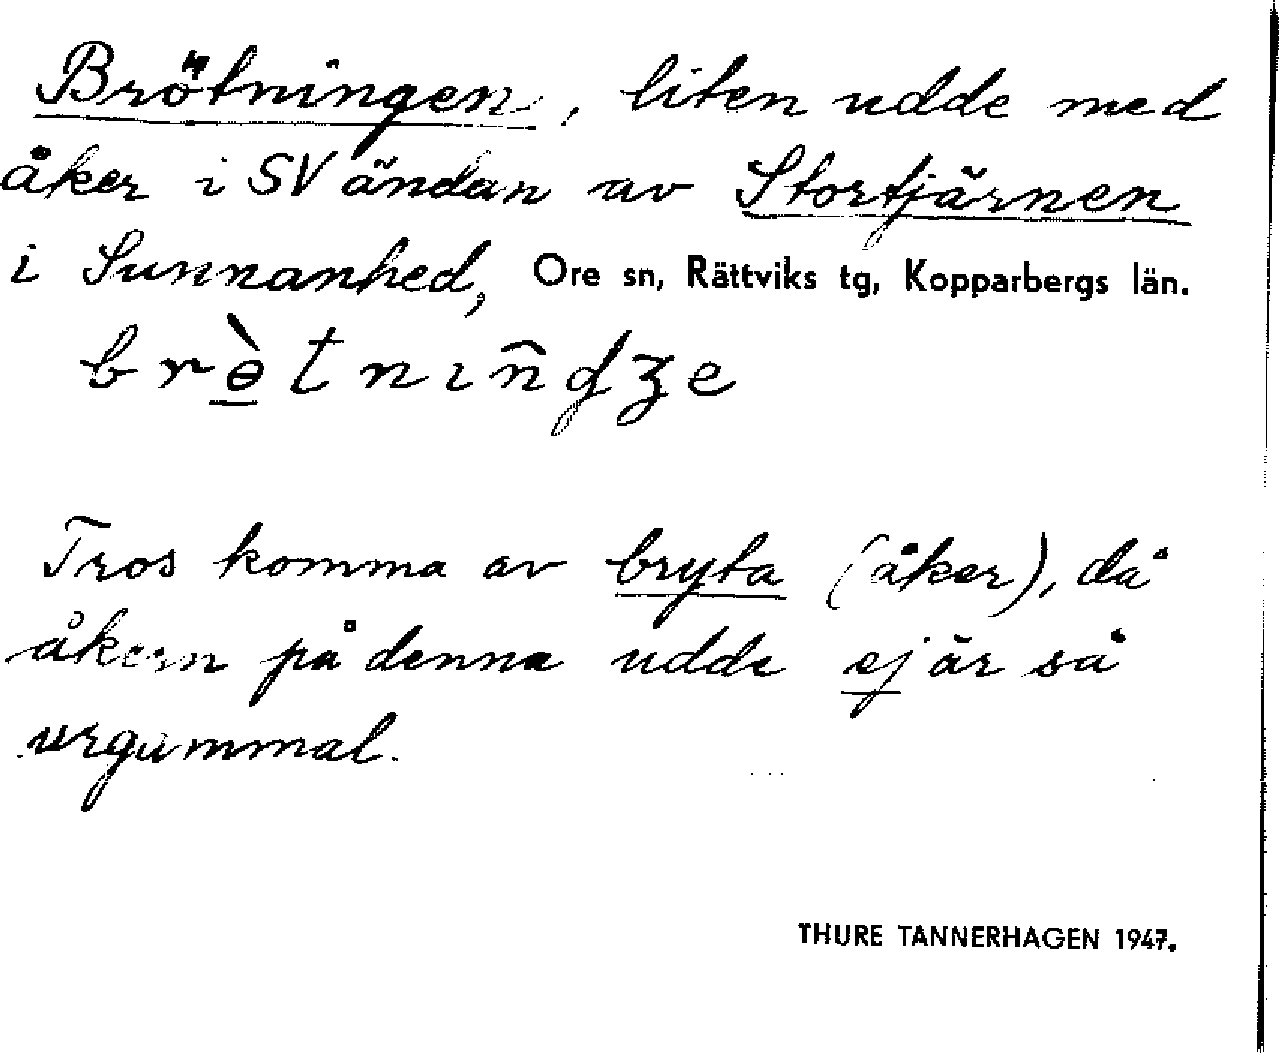 Brötningen, liten udde med
åker i SV ändan av Stortjärnen
i Sunnanhed, Ore sn, Rättviks tg, Kopparbergs län.
brɵ̠̀tnın̂ʤe
Tros komma av bryta (åker), då
åkern på denna udde ej är så
urgammal.
THURE TANNERHAGEN 1947.